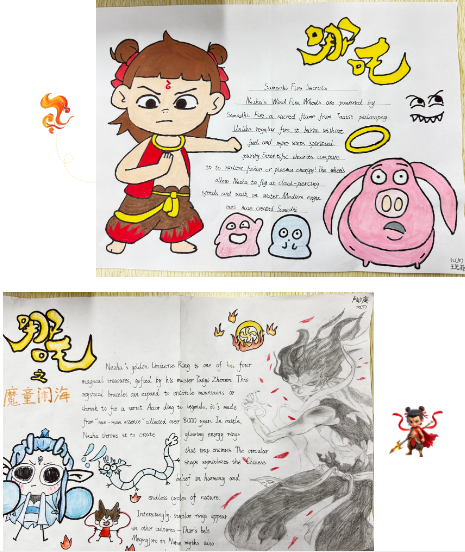 哪吒
Samadhi Fire Secrets
Nezha's Wind Fire Wheels are powered by
Samadhi Fire, a sacred flame from Taoist
Unlike regular fire, it burns without
fuel and
purity. Scientific theories compare
it to nuclear fusion or plasma energy. The wheels
allow Nezha to fly at cloud-piercing
speeds and walk on water. Modern
哪吒
之
魔童闹海
Nezha's golden Universe Ring is one of his four
magical treasures, gifted by his master Taiyi Zhenren. This
mystical bracelet can expand to encircle mountains or
shrink to fit a wrist. According to legends, it's made
from "essence" collected over 8000 years. In battle,
Nezha throws it to create glowing energy rings
that trap enemies. The circular
shape symbolizes the Chinese
belief in harmony and
endless cycles of nature.
Interestingly, similar rings appear
in other cultures - Thor's belt
Megingjörð in Norse myths also